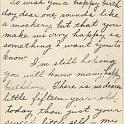 To wish you a happy birth
day, dear one, sounds like
a mockery but that you
make me very happy is
something I want you to
know.
I'm still hoping
you will know many happy
birthdays. There is no dearer
little fifteen year old
today than just your